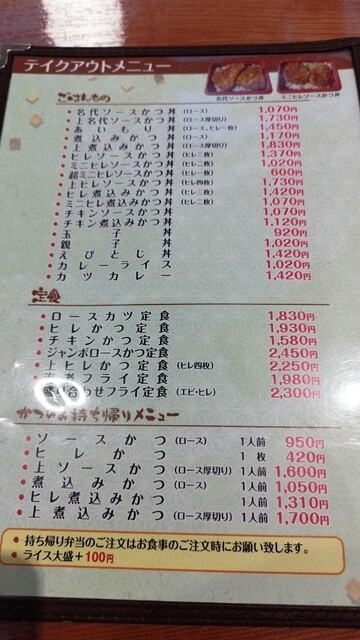 テイクアウトメニュー
名代ソースかつ丼 ミニヒレソースかつ丼
ごはんもの
• 名代ソースかつ丼 (ロース) 1,070円
• 上名代ソースかつ丼 (ロース厚切り) 1,730円
• あいもり丼 (ロース、ヒレ一枚) 1,450円
• 煮込みかつ丼 (ロース) 1,170円
• 上煮込みかつ丼 (ロース厚切り) 1,830円
• ヒレソースかつ丼 (ヒレ三枚) 1,370円
• ミニヒレソースかつ丼 (ヒレ二枚) 1,020円
• 超ミニヒレソースかつ丼 (ヒレ一枚) 600円
• 上ヒレソースかつ丼 (ヒレ四枚) 1,730円
• ヒレ煮込みかつ丼 (ヒレ三枚) 1,420円
• ミニヒレ煮込みかつ丼 (ヒレ二枚) 1,070円
• チキンソースかつ丼 1,070円
• チキン煮込みかつ丼 1,120円
• 玉子丼 920円
• 親子丼 1,020円
• えびとじ丼 1,420円
• カレーライス 1,020円
• カツカレー 1,420円
定食
• ロースカツ定食 1,830円
• ヒレかつ定食 1,930円
• チキンかつ定食 1,580円
• ジャンボロースかつ定食 2,450円
• 上ヒレかつ定食 (ヒレ四枚) 2,250円
• 海老フライ定食 1,980円
• 盛り合わせフライ定食 (エビ・ヒレ) 2,300円
かつのお持ち帰りメニュー
• ソースかつ (ロース) 1人前 950円
• ヒレかつ 1枚 420円
• 上ソースかつ (ロース厚切り) 1人前 1,600円
• 煮込みかつ (ロース) 1人前 1,050円
• ヒレ煮込みかつ 1人前 1,310円
• 上煮込みかつ (ロース厚切り) 1人前 1,700円
• 持ち帰り弁当のご注文はお食事のご注文時にお願い致します。
• ライス大盛+100円